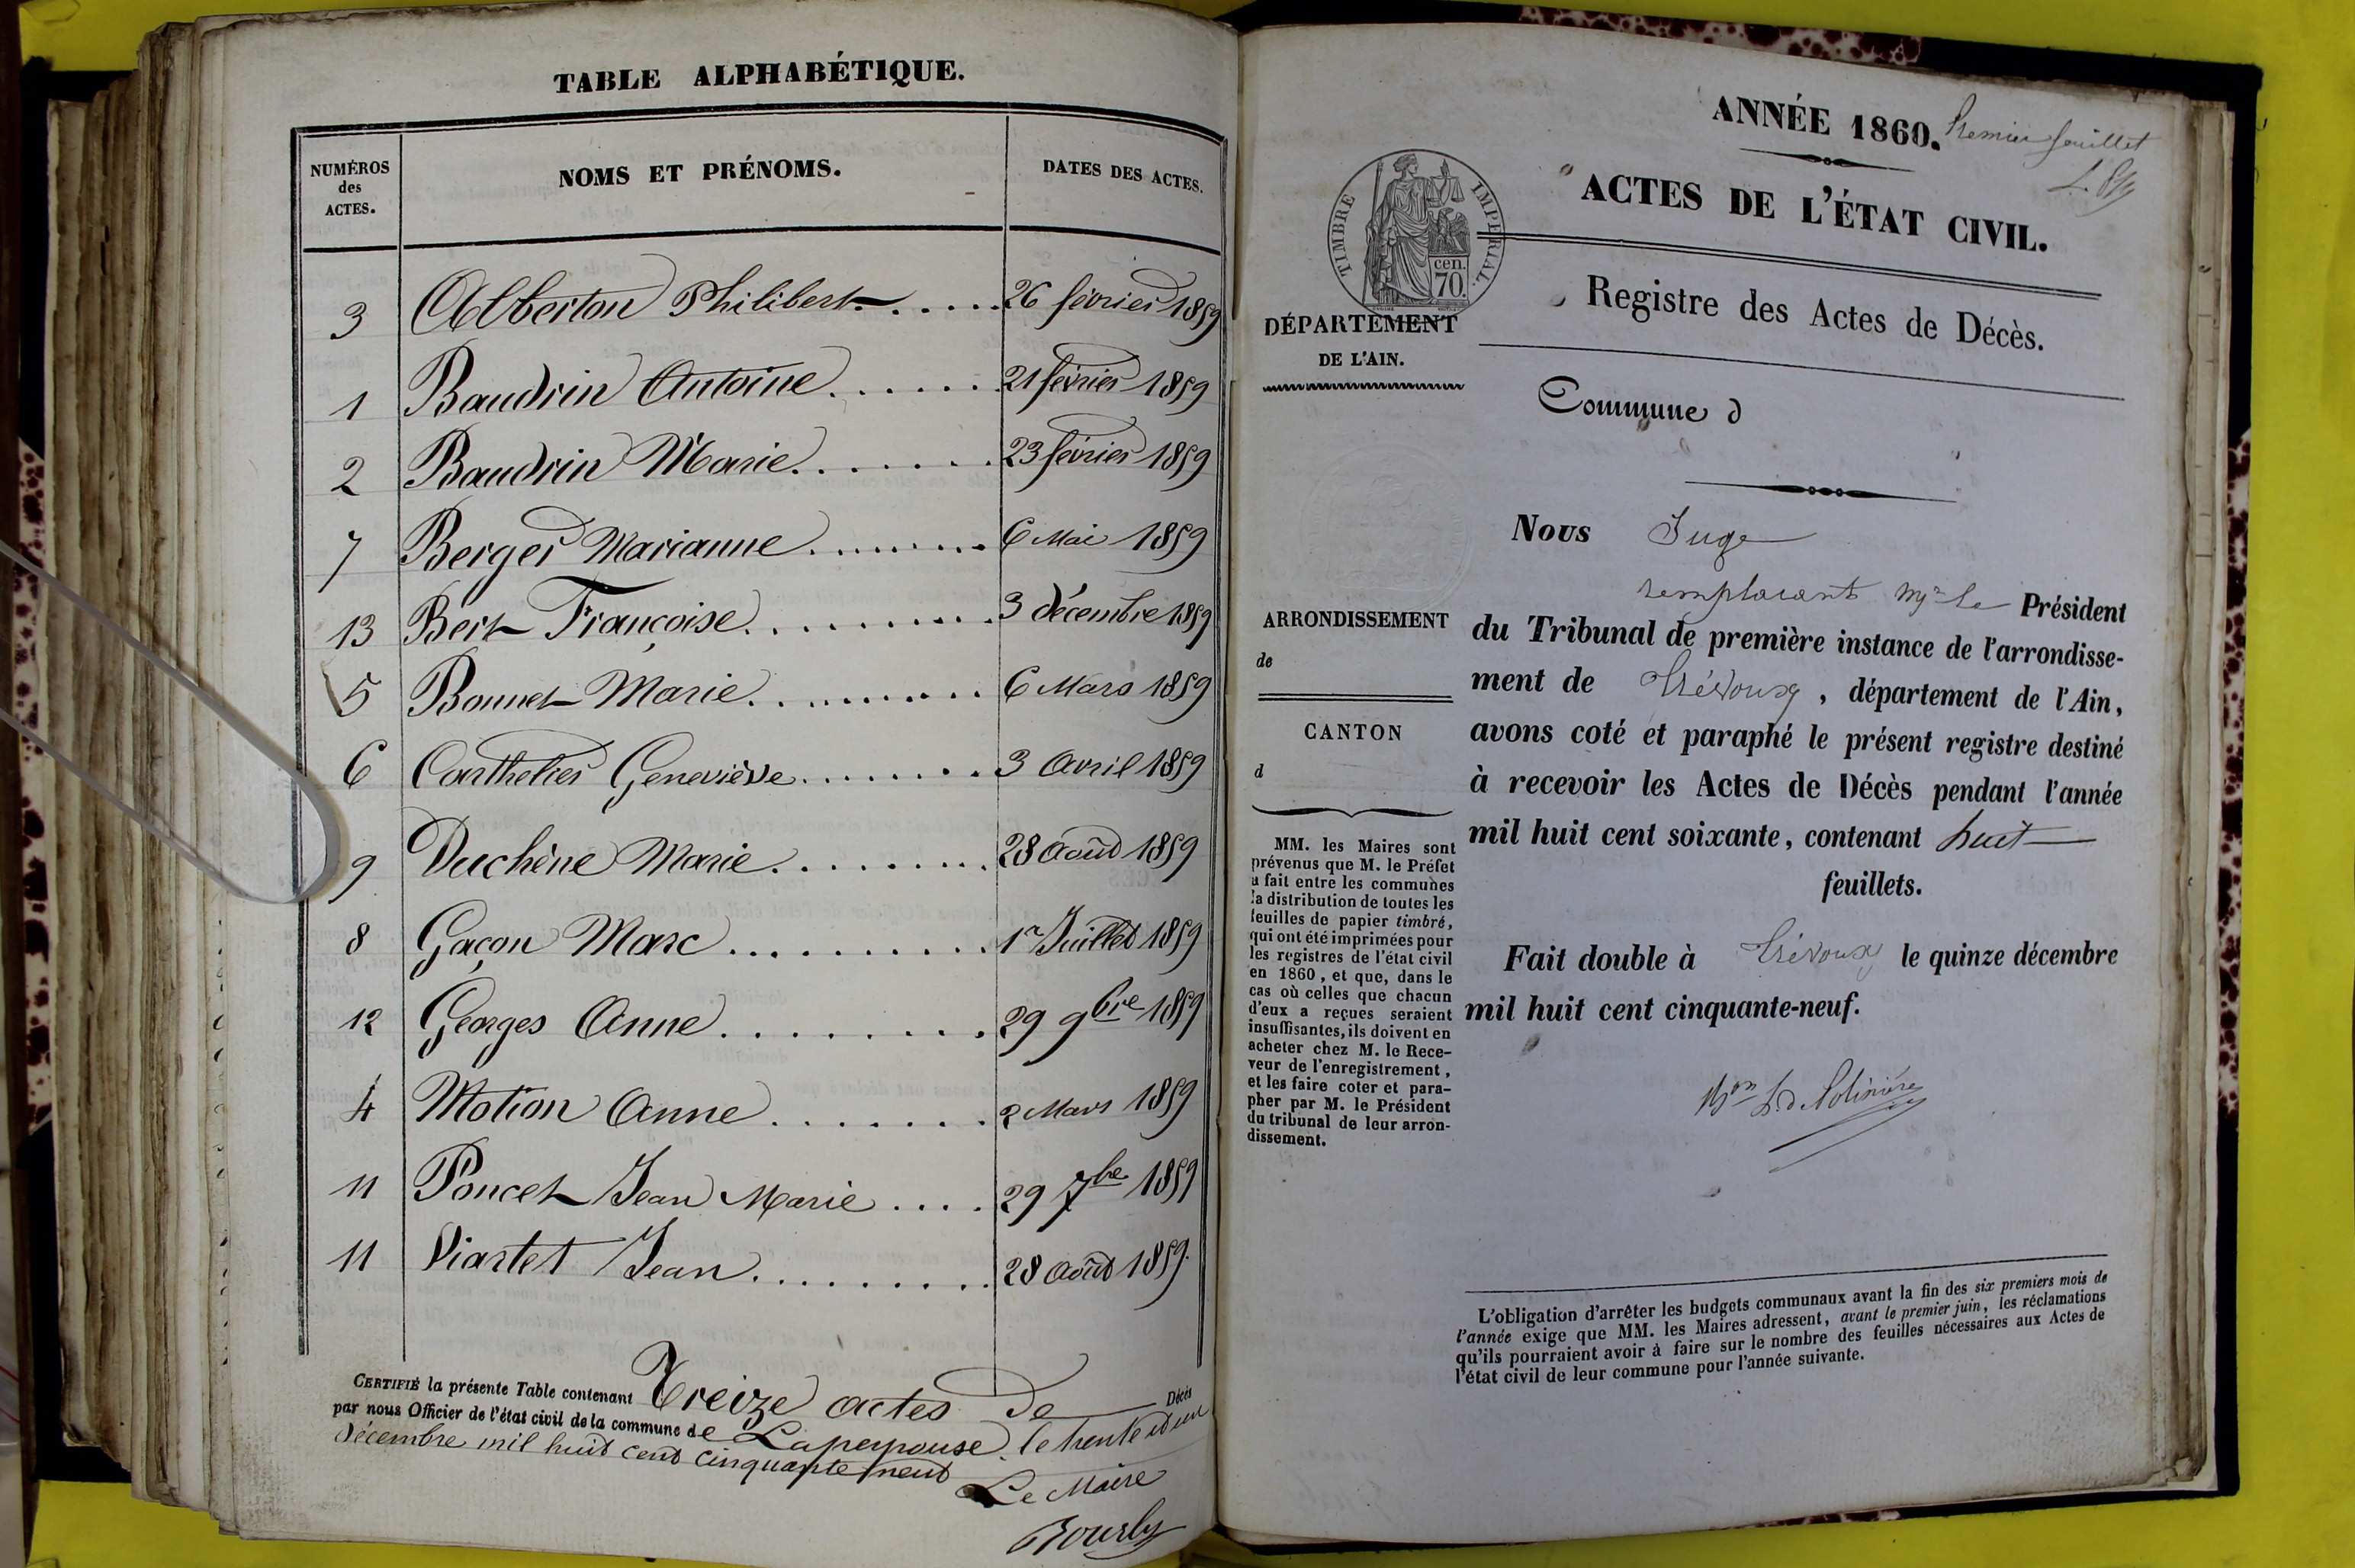 TABLE ALPHABÉTIQUE.
NUMÉROS des ACTES.
NOMS ET PRÉNOMS.
DATES DES ACTES.
3 Alberton Philibert..... 26 février 1859
1 Baudrin Antoine...... 21 février 1859
2 Baudrin Marie....... 23 février 1859
7 Berger Marianne......... 6 Mai 1859
13 Bert Françoise.......... 3 décembre 1859
5 Bonnet Marie......... 6 Mars 1859
6 Carthelier Geneviève........ 3 Avril 1859
9 Duchêne Marie......... 28 Août 1859
8 Gaçon Marc.......... 1r Juillet 1859
12 Georges Anne.......... 29 9bre 1859
4 Motion Anne........ 2 Mars 1859
11 Poncet Jean Marie.... 29 7bre 1859
11 Viartet Jean.......... 28 Août 1859.
CERTIFIÉ la présente Table contenant Treize actes de Décès
par nous Officier de l'état civil de la commune de Lapeyrouse, le trente et un
décembre mil huit cent cinquante neuf
Le Maire
Bourly
ANNÉE 1860.
Premier feuillet
ACTES DE L'ÉTAT CIVIL.
TIMBRE IMPÉRIAL.
70 cen.
Registre des Actes de Décès.
DÉPARTEMENT
DE L'AIN.
Commune d
Nous Juge
remplacant Mr le Président
du Tribunal de première instance de l'arrondisse-
ment de Trévoux, département de l'Ain,
avons coté et paraphé le présent registre destiné
à recevoir les Actes de Décès pendant l'année
mil huit cent soixante, contenant huit
feuillets.
Fait double à Trévoux le quinze décembre
mil huit cent cinquante-neuf.
ARRONDISSEMENT
de
CANTON
d
MM. les Maires sont
prévenus que M. le Préfet
a fait entre les communes
la distribution de toutes les
feuilles de papier timbré,
qui ont été imprimées pour
les registres de l'état civil
en 1860, et que, dans le
cas où celles que chacun
d'eux a reçues seraient
insuffisantes, ils doivent en
acheter chez M. le Rece-
veur de l'enregistrement,
et les faire coter et para-
pher par M. le Président
du tribunal de leur arron-
dissement.
L'obligation d'arrêter les budgets communaux avant la fin des six premiers mois de
l'année exige que MM. les Maires adressent, avant le premier juin, les réclamations
qu'ils pourraient avoir à faire sur le nombre des feuilles nécessaires aux Actes de
l'état civil de leur commune pour l'année suivante.